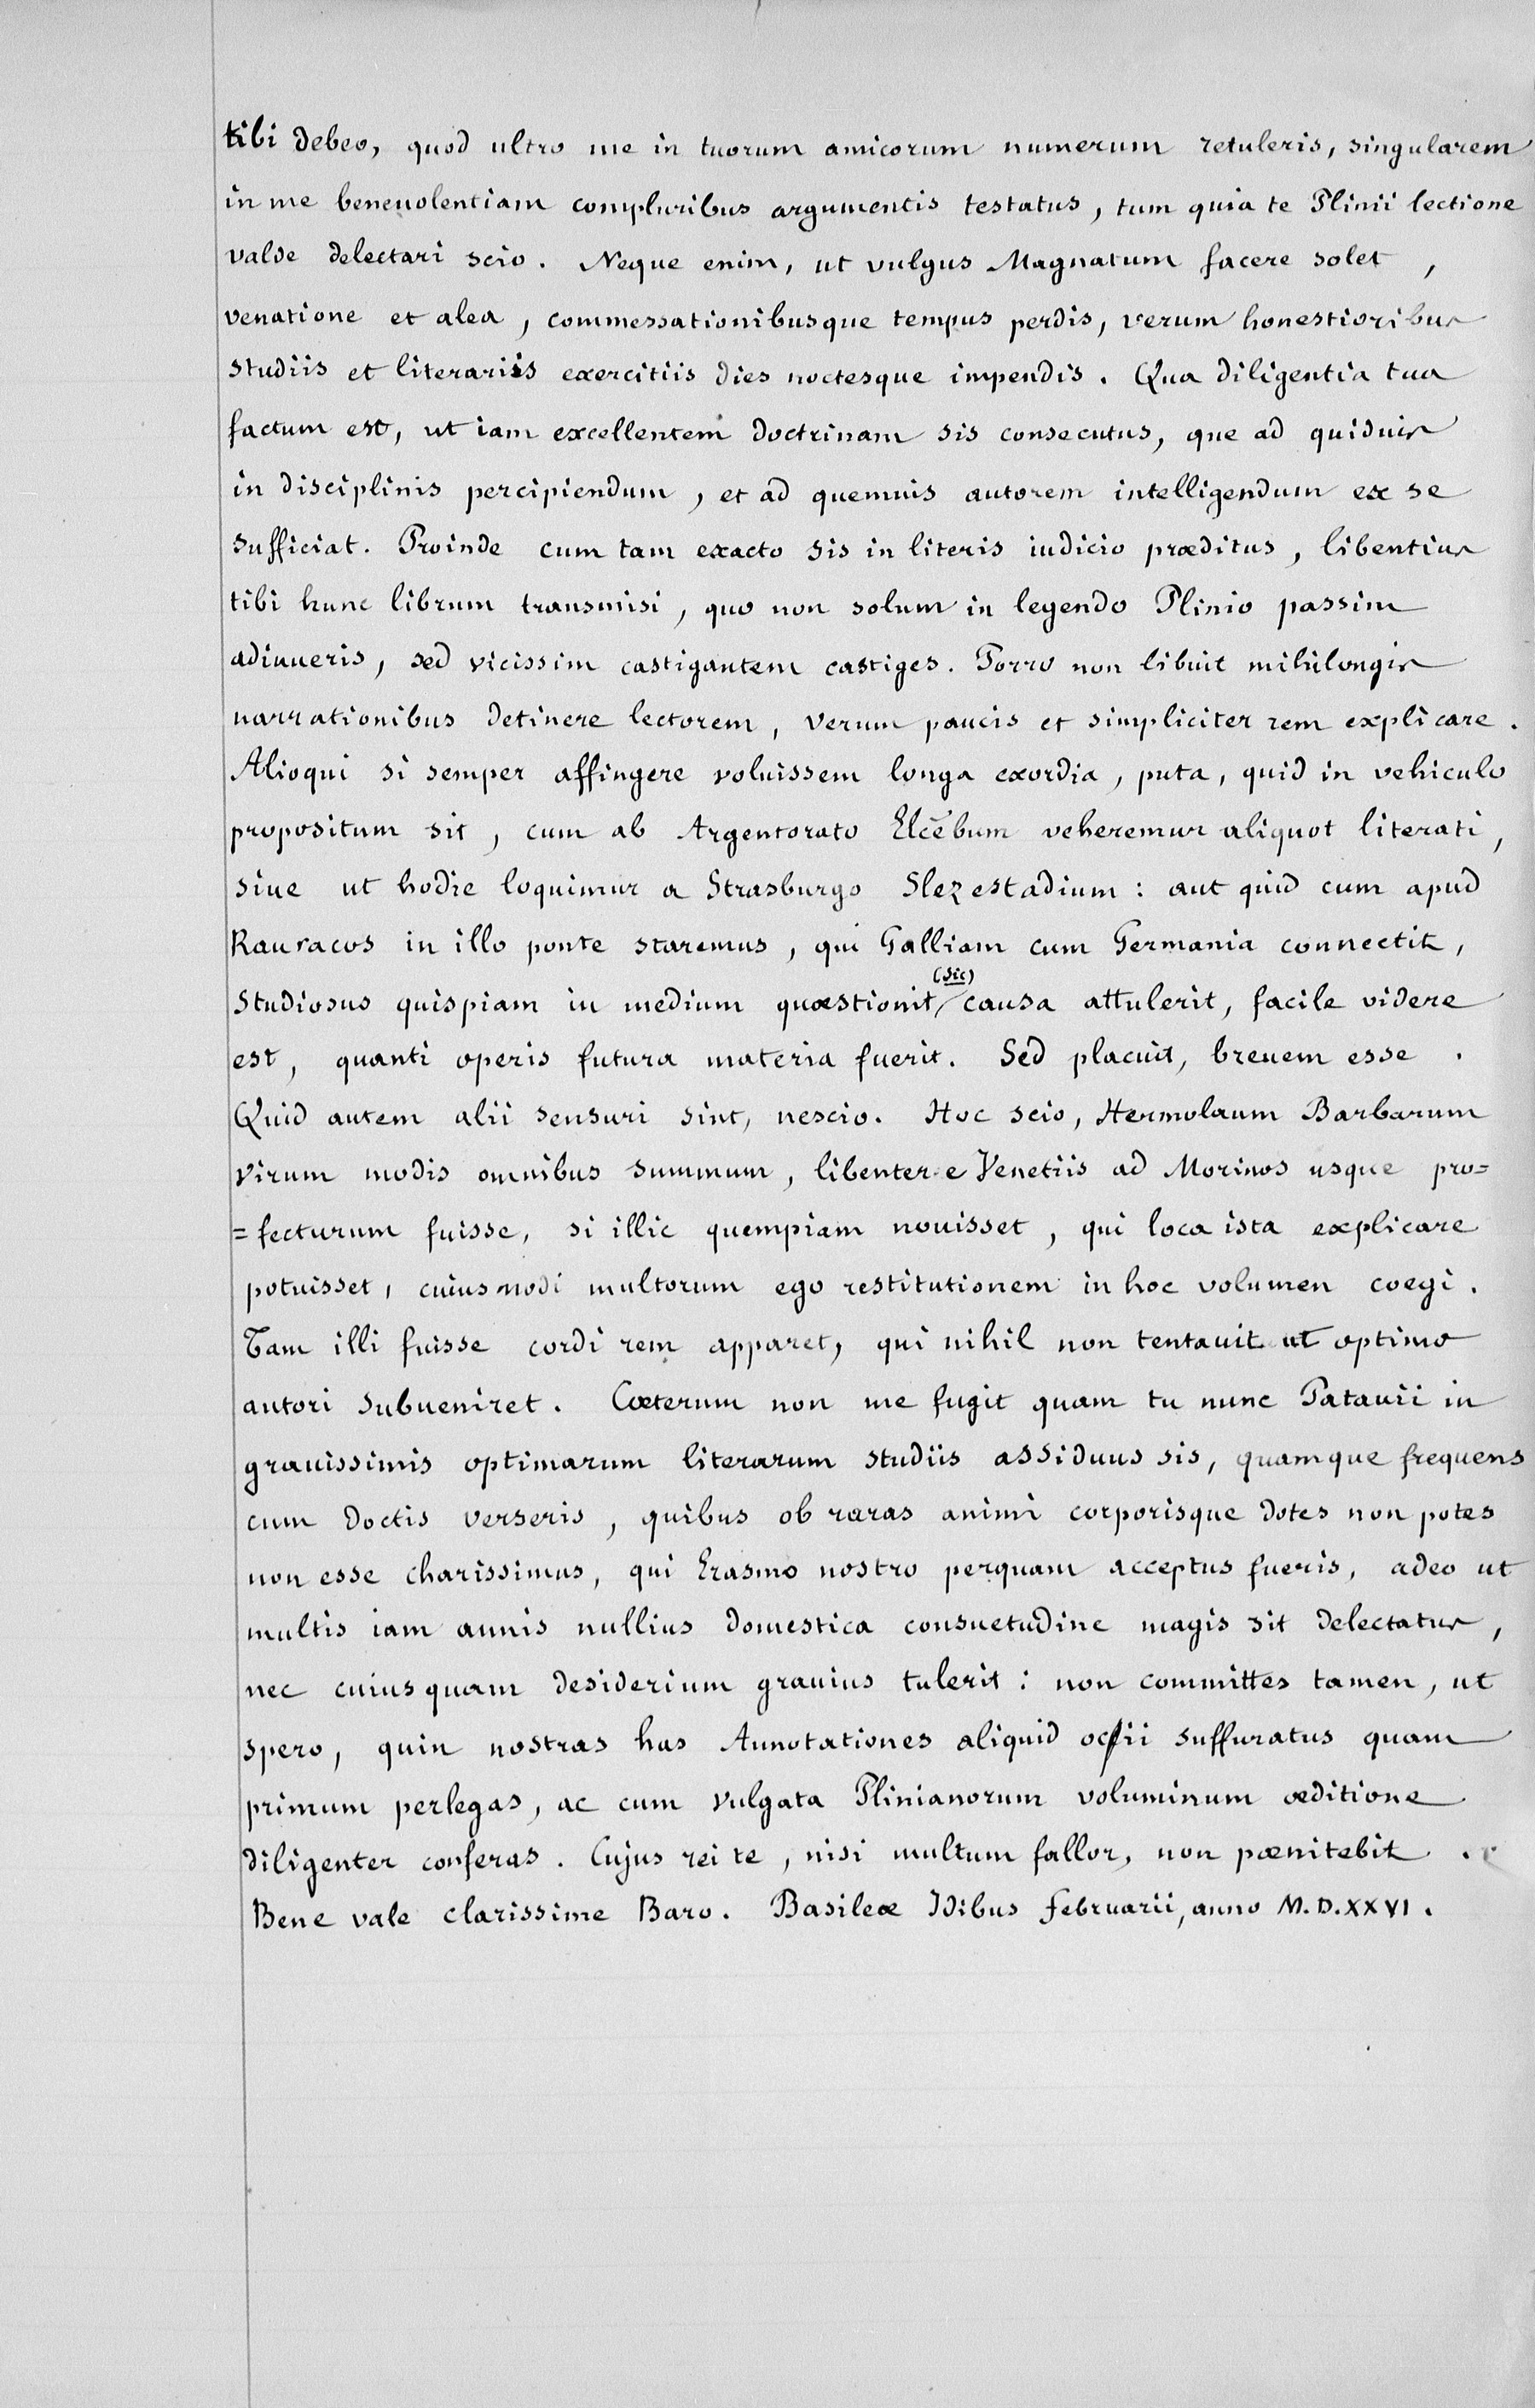 tibi debeo, quod ultro me in tuorum amicorum numerum retuleris, singularem
in me beneuolentiam compluribus argumentis testatus, tum quia te Plinii lectione
valde delectari scio. Neque enim, ut vulgus Magnatum facere solet,
venatione et alea, commessationibusque tempus perdis, verum honestioribus
studiis et literariis exercitiis dies noctesque impendis. Qua diligentia tua
factum est, ut iam excellentem doctrinam sis consecutus, que ad quiduis
in disciplinis percipiendum, et ad quemuis autorem intelligendum ex se
sufficiat. Proinde cum tam exacto sis in literis iudicio præditus, libentius
tibi hunc librum transmisi, quo non solum in legendo Plinio passim
adiuueris, sed vicissim castigantem castiges. Porro non libuit mihi longis
narrationibus detinere lectorem, verum paucis et simpliciter rem explicare.
Alioqui si semper affingere voluissem longa exordia, puta, quid in vehiculo
propositum sit, cum ab Argentorato Elcebum veheremur aliquot literati,
siue ut hodie loquimur a Strasburgo Slezestadium: aut quid cum apud
Rauracos in illo ponte staremus, qui Galliam cum Germania connectit,
(sic)
studiosus quispiam in medium quæstionit causa attulerit, facile videre
est, quanti operis futura materia fuerit. Sed placuit, breuem esse.
Quid autem alii sensuri sint, nescio. Hoc scio, Hermolaum Barbarum
virum modis omnibus summum, libenter e Venetiis ad Morinos usque pro=
=fecturum fuisse, si illic quempiam nouisset, qui loca ista explicare
potuisset, cuiusmodi multorum ego restitutionem in hoc volumen coegi.
Tam illi fuisse cordi rem apparet, qui nihil non tentauit ut optimo
autori subueniret. Cæterum non me fugit quam tu nunc Patauii in
grauissimis optimarum literarum studiis assiduus sis, quamque frequens
cum doctis verseris, quibus ob raras animi corporisque dotes non potes
non esse charissimus, qui Erasmo nostro perquam acceptus fueris, adeo ut
multis iam annis nullius domestica consuetudine magis sit delectatus,
nec cuiusquam desiderium grauius tulerit: non committes tamen, ut
spero, quin nostras has Annotationes aliquid ocii suffuratus quam
primum perlegas, ac cum vulgata Plinianorum voluminum æditione
diligenter conferas. Cujus rei te, nisi multum fallor, non pœnitebit.
Bene vale clarissime Baro. Basileæ Idibus februarii, anno M.D.XXVI.